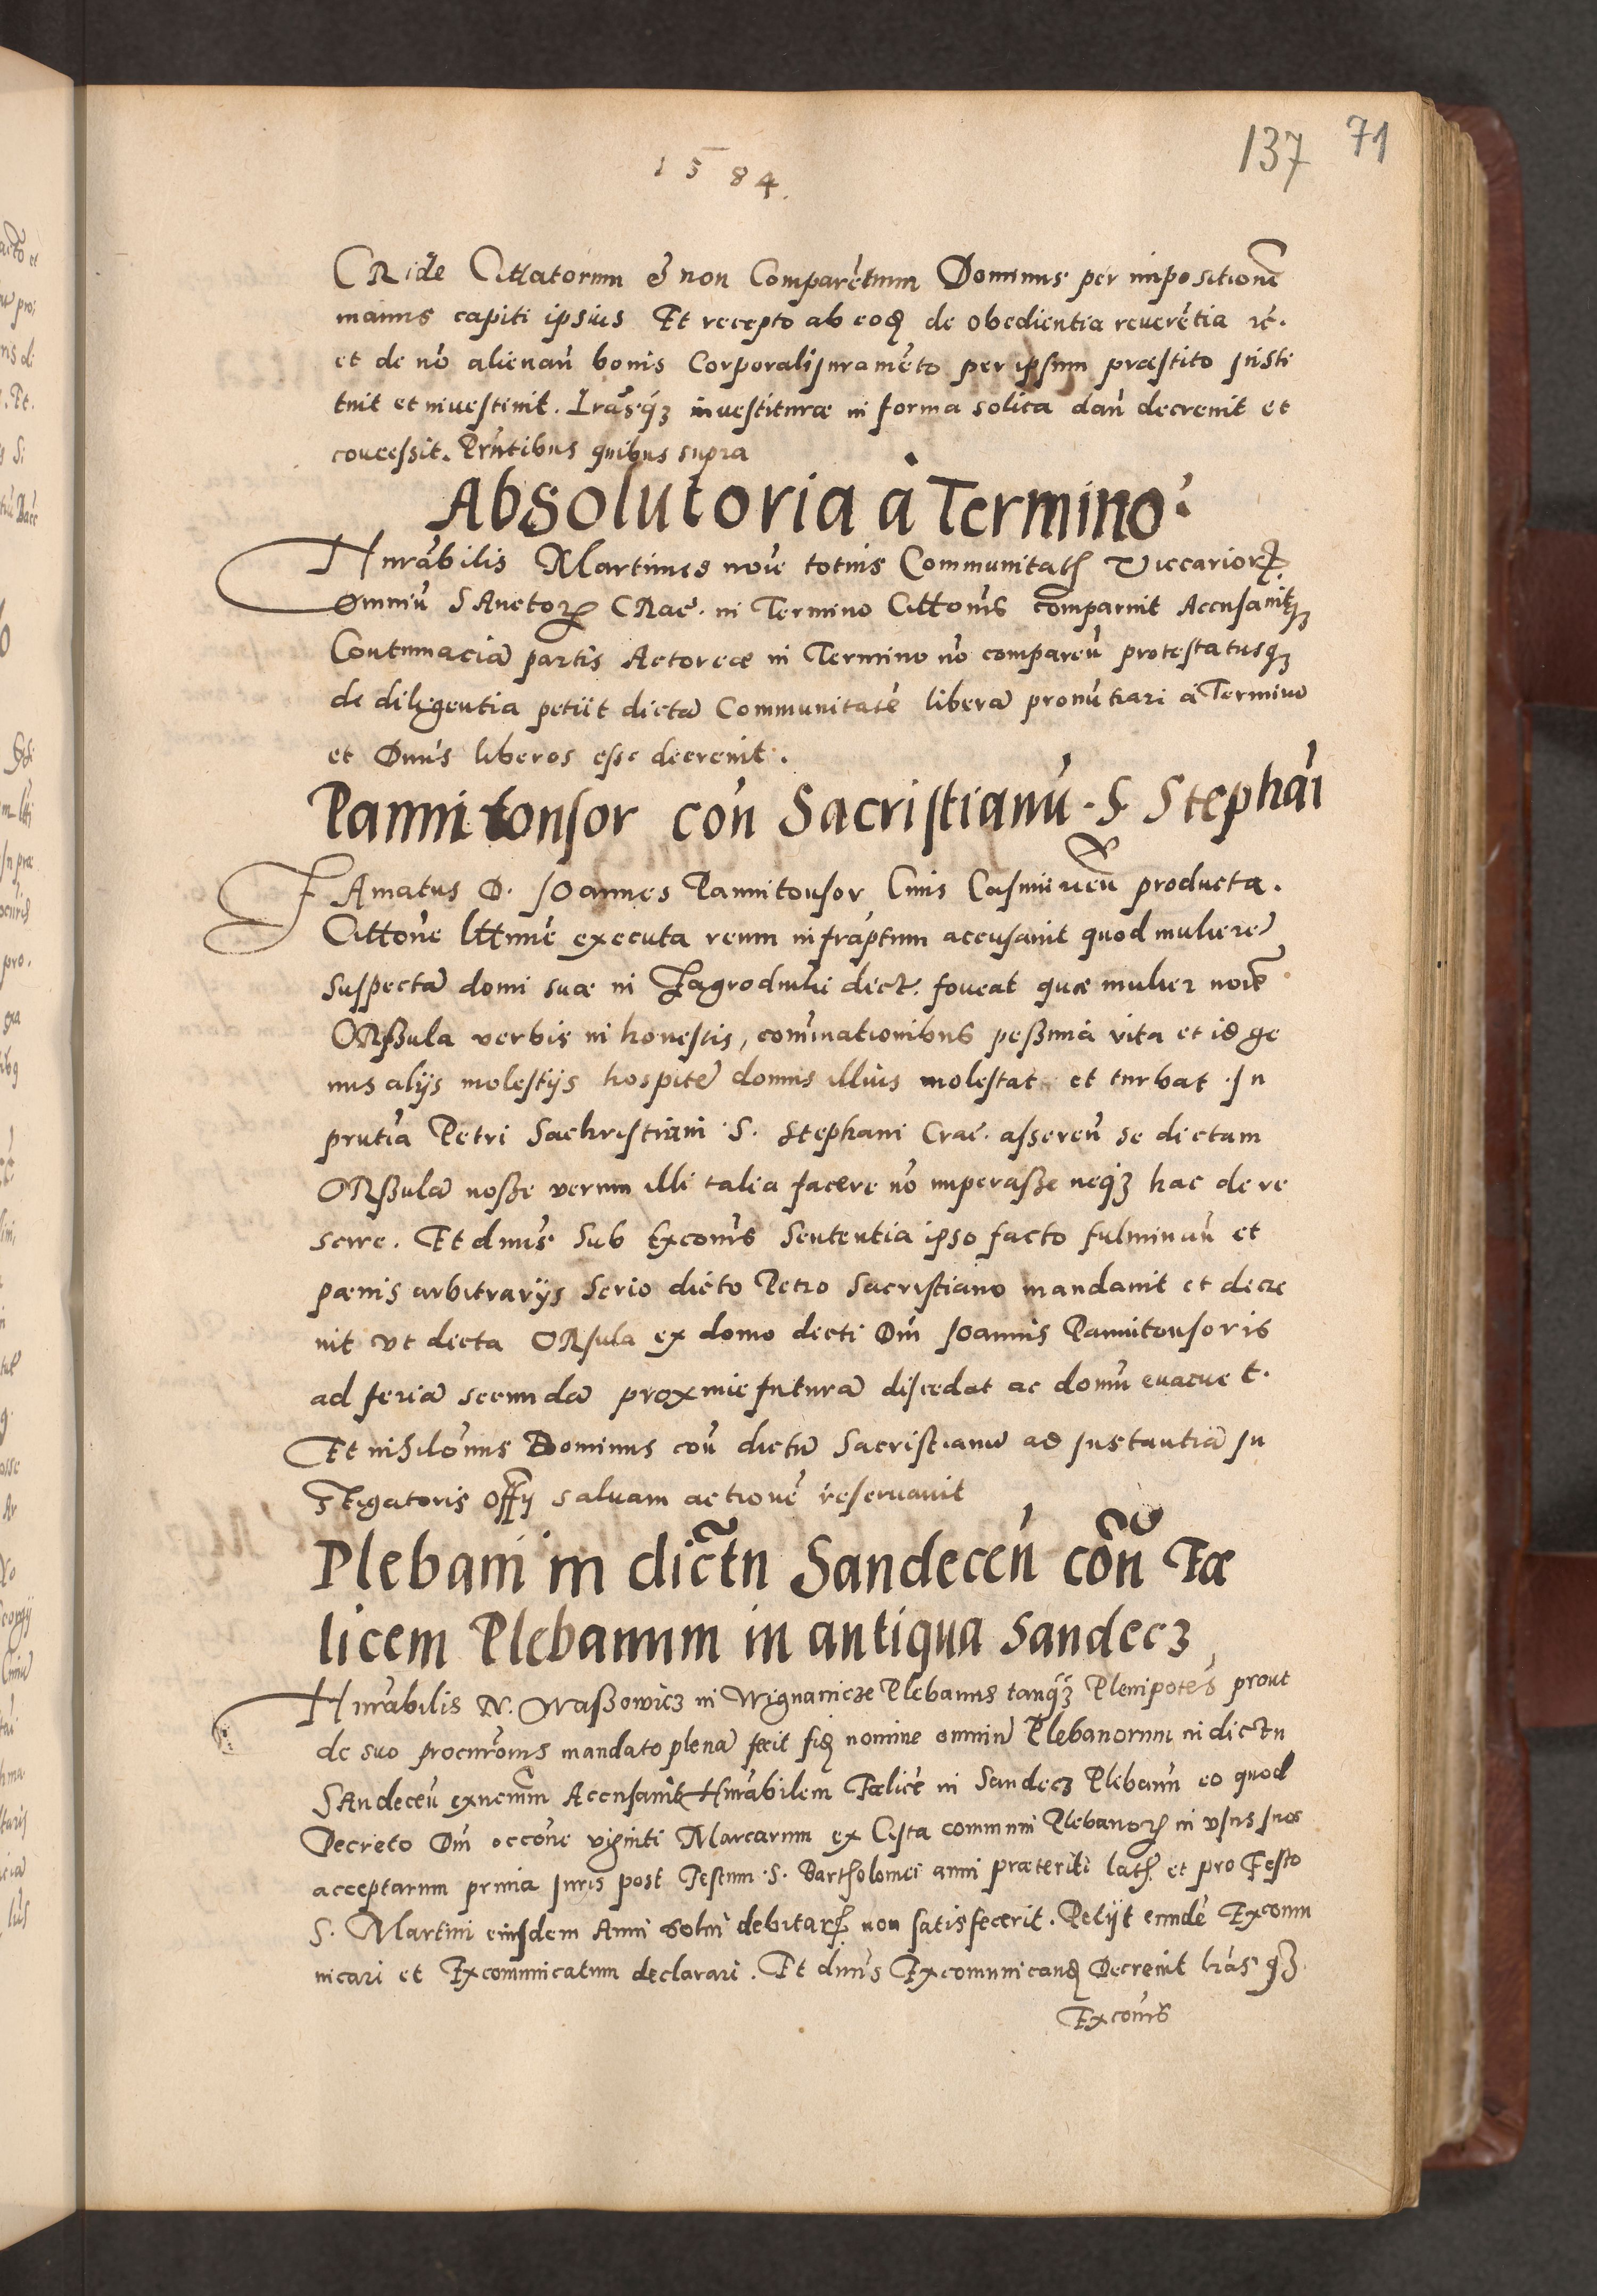 137 71
1584.
CRide Cittatorum & non Comparētium Dominus per impositionē
manus capiti ipsius Et recepto ab eoꝗ de obedientia reverētia ꝛc̄.
et de nō alienań bonis Corporali juramēto per ipsum præstito insti
tuit et investivit. Lrāsqꝫ investituræ in forma solita dań decrevit et
concessit. Prńtibus quibus supra
Absolutoria à Termino.
Hnrābilis Martinus noīe totius Communitatis Viccarioꝝ
omniū SAnctoꝝ CRac̄. in Termino Cittonis comparuit Accusavitqꝫ
Contumaciā partis Actoreæ in Termino nō compareń protestatusqꝫ
de diligentia petiit dictā Communitatē liberā pronūtiari à Termino
et Dnūs liberos esse decrevit.
Pannitonsor coń Sacristianū S Stephāi
FAmatus D. JOannes Pannitonsor Civis Casmirień producta
Cittone lttime executa reum infrāptum accusavit quod mulierē
suspectā domi suæ in Zagrodniki dict. foveat quæ mulier noīe
ORßula verbis in honestis, cominationibus peßima vita et id ge
nus alijs molestijs hospitē domus illius molestat et turbat. In
prntia Petri Sachristiani S. Stephani Crac̄. assereń se dictam
ORßulā noße verum illi talia facere nō imperaße neqꝫ hac de re
scire. Et dnūs sub Excoīs sententia ipso facto fulminań et
pœnis arbitrarijs serio dicto Petro Sacristiano mandavit et decre
vit vt dicta ORsula ex domo dicti Dńi JOannis Pannitonsoris
ad feriā secundā proxime futurā discedat ac domū evacuet.
Et nihilōmus Dominus coń dictū Sacristianū ad instantiā In
stigatoris offij salvam actionē reservavit
Plebani in dictu Sandeceń cōń Fæ
licem Plebanum in antiqua Sandecz
Hnrābilis N. Waßowicz in Wignanicze Plebanus tanqꝫ Plenipotēs prout
de suo procurōnis mandato plenā fecit fiꝗ nomine omniū Plebanorum in dictu
SAndeceń exnem̄m Accusavit Hnrābilem Fælicē in Sandecz Plebanū eo quod
Decreto Dńi occōne viginti Marcarum ex Cista communi Plebanoꝝ in vsus suos
acceptarum prima juris post Festum S. Bartholomei anni præteriti lati et pro Festo
S. Martini eiusdem Anni solui debitaꝝ non satisfecerit. Petijt eundē Excomu
nicari et Excommunicatum declarari. Et dnūs Excomunicandꝗ Decrevit lrās qꝫ
Excoīs